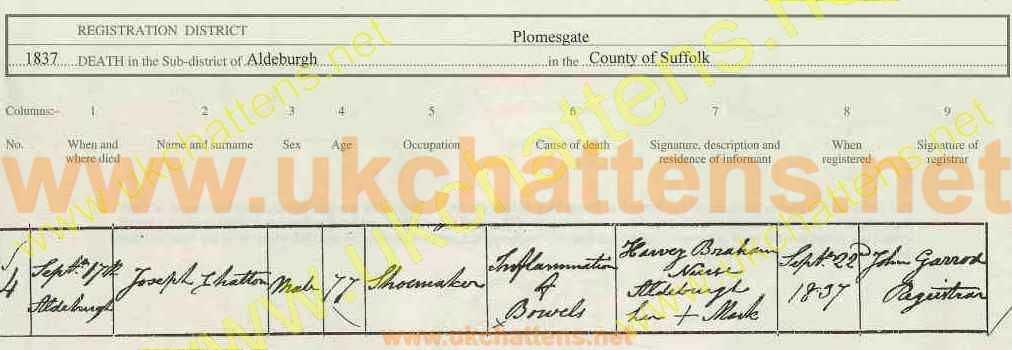 REGISTRATION DISTRICT Plomesgate
1837 DEATH in the Sub-district of Aldeburgh in the County of Suffolk
Columns:- 1 2 3 4 5 6 7 8 9
No. When and where died Name and surname Sex Age Occupation Cause of death Signature, description and residence of informant When registered Signature of registrar
www.ukchattens.net
4
Septr 17th
Aldeburgh
Joseph Chatton
Male
77
Shoemaker
Inflammation
of
Bowels
Harvey Braham
Nurse
Aldeburgh
her + Mark
Septr 22d
1837
John Garrod
Registrar
www.ukchattens.net
www.ukchattens.net
www.ukchattens.net
www.ukchattens.net
www.ukchattens.net
www.ukchattens.net